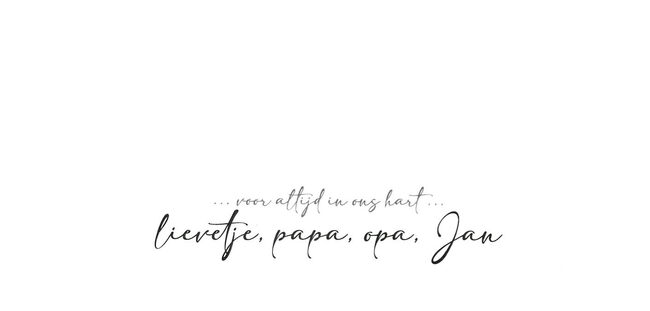 ... voor altijd in ons hart ...
lievetje, papa, opa, Jan